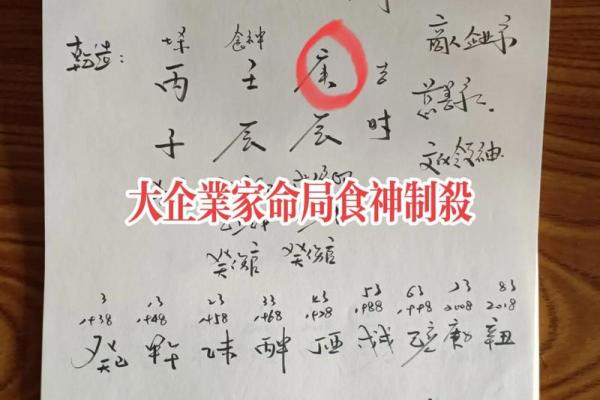 乾造：
杀 食神
丙 壬 庚 吉
子 辰 辰 时
商人企业家
慈善家
文化领袖
大企業家命局食神制殺
癸伤官 癸伤官
3 13 23 33 43 53 63 73 83
1938 1948 1958 1968 1978 1988 1998 2008 2018
癸巳 甲午 乙未 丙申 丁酉 戊戌 己亥 庚子 辛丑